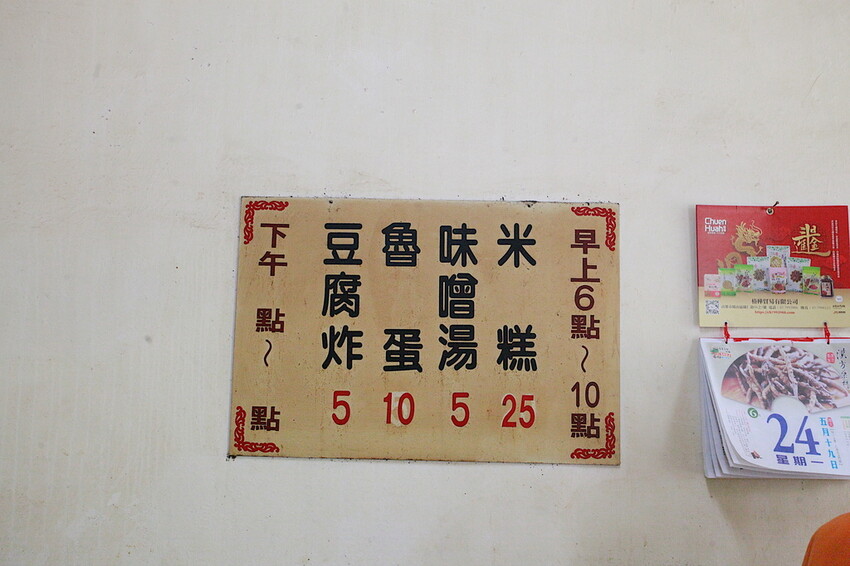 早上6點～10點
米糕 25
味噌湯 5
魯蛋 10
豆腐炸 5
下午 點～ 點
Chuen Huah
24
星期一
五月十九日